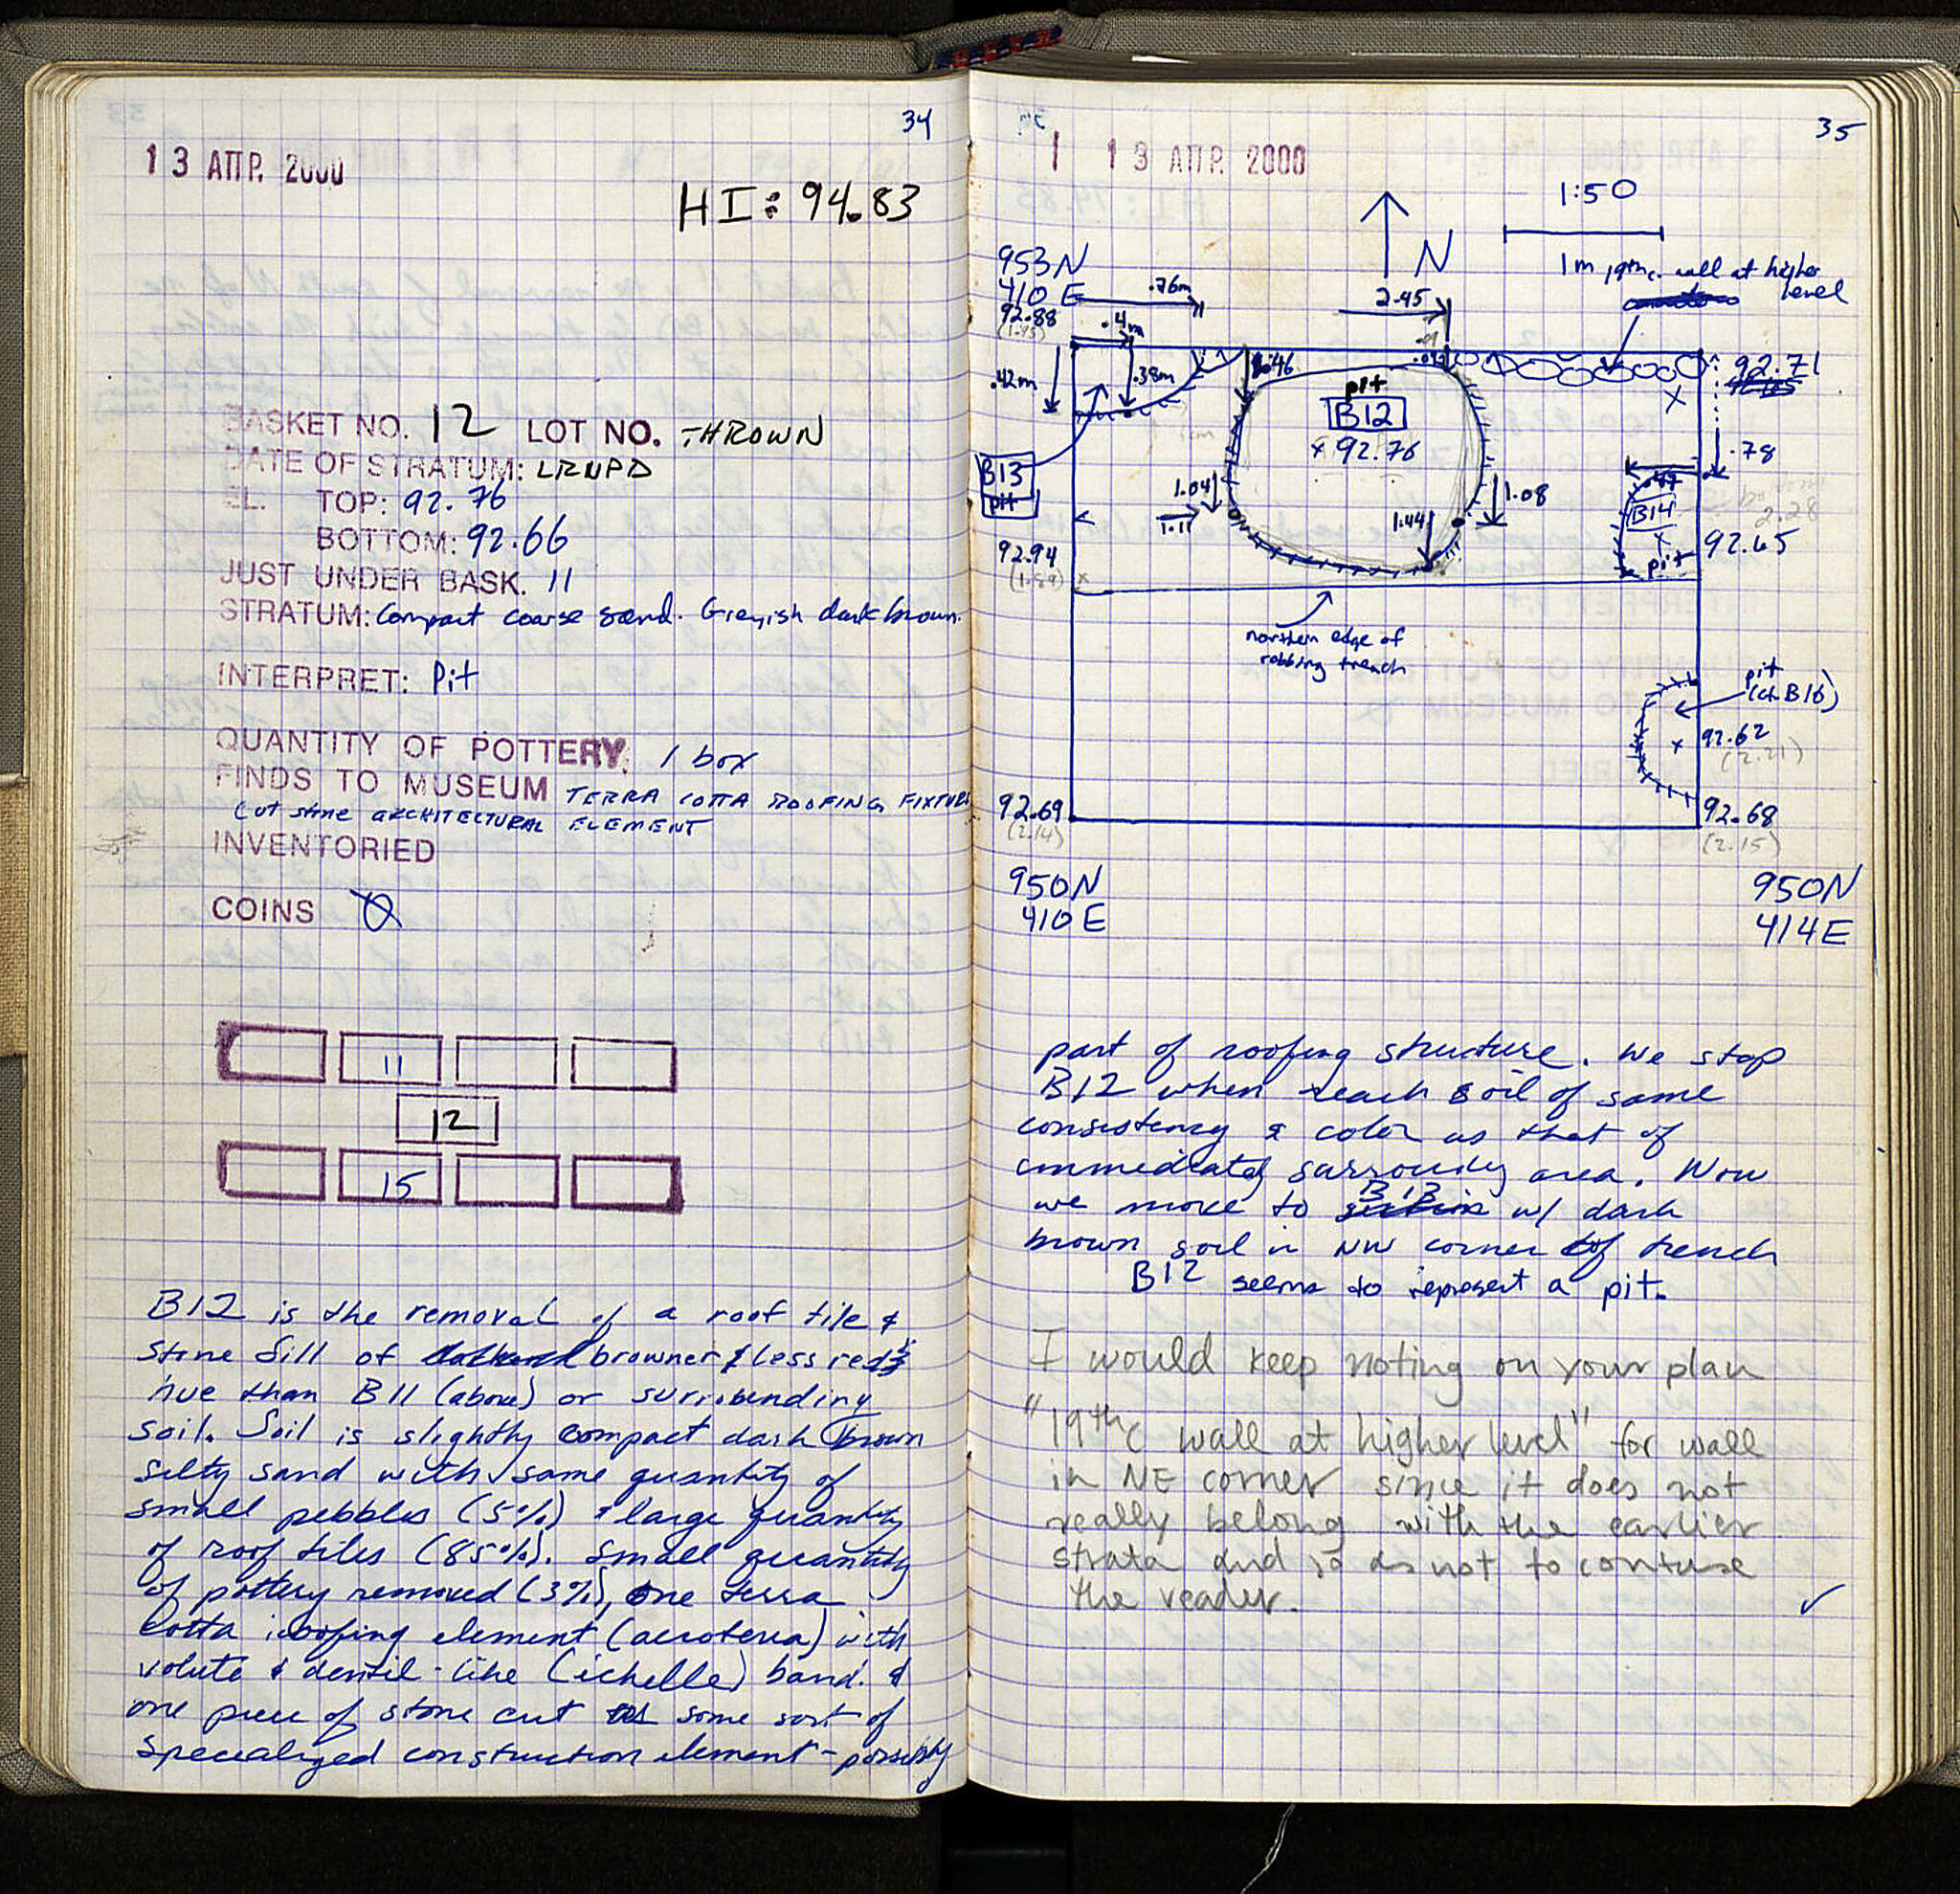 34
13 ΑΠΡ. 2000
HI: 94.83
BASKET NO. 12 LOT NO. THROWN
DATE OF STRATUM: LRUPD
EL. TOP: 92.76
BOTTOM: 92.66
JUST UNDER BASK. 11
STRATUM: Compact coarse sand. Greyish dark brown.
INTERPRET: Pit
QUANTITY OF POTTERY: 1 box
FINDS TO MUSEUM TERRA COTTA ROOFING FIXTURE
Cut stone ARCHITECTURAL ELEMENT
INVENTORIED
COINS Ø
11
12
15
B12 is the removal of a roof tile &
stone fill of browner & less red
hue than B11 (above) or surrounding
soil. Soil is slightly compact dark brown
silty sand with some quantity of
small pebbles (5%) & large quantity
of roof tiles (85%). Small quantity
of pottery removed (3%), one terra
cotta roofing element (acroteria) with
volute & dentil-like (ichelle) band. &
one piece of stone cut as some sort of
specialized construction element - possibly
35
13 ΑΠΡ. 2000
1:50
N
1m
19th c. wall at higher
level
953N
410 E
92.88
(1.95)
.76m
.4m
2.45
.42m
.38m
.46
92.71
.78
pit
B12
x 92.76
B13
pit
1.04
1.11
1.44
1.08
.47
B14
pit
2.28
92.65
92.94
(1.89)
northern edge of
robbing trench
pit
(cf. B16)
92.62
(2.21)
92.69
(2.14)
92.68
(2.15)
950N
410 E
950N
414E
part of roofing structure. We stop
B12 when reach soil of same
consistency & color as that of
immediately surroundy area. Now
we move to B13 w/ dark
brown soil in NW corner of trench
B12 seems to represent a pit.
I would keep noting on your plan
"19th c wall at higher level" for wall
in NE corner since it does not
really belong with the earlier
strata and so as not to confuse
the reader.